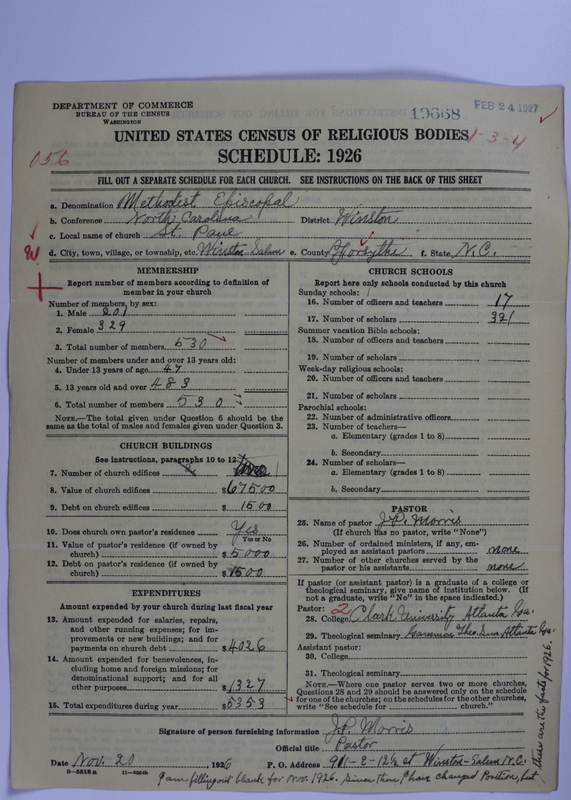 DEPARTMENT OF COMMERCE
BUREAU OF THE CENSUS
WASHINGTON
19668
FEB 24 1927
UNITED STATES CENSUS OF RELIGIOUS BODIES
1-3-4
SCHEDULE: 1926
056
FILL OUT A SEPARATE SCHEDULE FOR EACH CHURCH. SEE INSTRUCTIONS ON THE BACK OF THIS SHEET
a. Denomination Methodist Episcopal
b. Conference North Carolina District Winston
c. Local name of church St. Paul
d. City, town, village, or township, etc. Winston Salem e. County Forsythe f. State N.C.
MEMBERSHIP
Report number of members according to definition of
member in your church
Number of members, by sex:
1. Male 201
2. Female 329
3. Total number of members 530
Number of members under and over 13 years old:
4. Under 13 years of age 47
5. 13 years old and over 483
6. Total number of members 530
NOTE.—The total given under Question 6 should be the
same as the total of males and females given under Question 3.
CHURCH BUILDINGS
See instructions, paragraphs 10 to 12
7. Number of church edifices 1
8. Value of church edifices $67500
9. Debt on church edifices $1500
10. Does church own pastor's residence? Yes
Yes or No
11. Value of pastor's residence (if owned by
church) $5000
12. Debt on pastor's residence (if owned by
church) $1500
EXPENDITURES
Amount expended by your church during last fiscal year
13. Amount expended for salaries, repairs,
and other running expenses; for im-
provements or new buildings; and for
payments on church debt $4026
14. Amount expended for benevolences, in-
cluding home and foreign missions; for
denominational support; and for all
other purposes $1327
15. Total expenditures during year $5353
CHURCH SCHOOLS
Report here only schools conducted by this church
Sunday schools:
16. Number of officers and teachers 17
17. Number of scholars 321
Summer vacation Bible schools:
18. Number of officers and teachers
19. Number of scholars
Week-day religious schools:
20. Number of officers and teachers
21. Number of scholars
Parochial schools:
22. Number of administrative officers
23. Number of teachers—
a. Elementary (grades 1 to 8)
b. Secondary
24. Number of scholars—
a. Elementary (grades 1 to 8)
b. Secondary
PASTOR
25. Name of pastor J.P. Morris
(If church has no pastor, write "None")
26. Number of ordained ministers, if any, em-
ployed as assistant pastors none
27. Number of other churches served by the
pastor or his assistants none
If pastor (or assistant pastor) is a graduate of a college or
theological seminary, give name of institution below. (If
not a graduate, write "No" in the space indicated.)
Pastor: 2
28. College Clark University Atlanta Ga.
29. Theological seminary Gammon Theo. Sem. Atlanta Ga.
Assistant pastor:
30. College
31. Theological seminary
NOTE.—Where one pastor serves two or more churches,
Questions 28 and 29 should be answered only on the schedule
for one of the churches; on the schedules for the other churches,
write "See schedule for church."
Signature of person furnishing information J.P. Morris
Official title Pastor
Date Nov. 20, 1926 P. O. Address 911-E-12½ st Winston-Salem N.C.
S-5818 a 11-9264b
I am filling out blank for Nov. 1926. Since then I have changed Position, but
these are the facts for 1926.